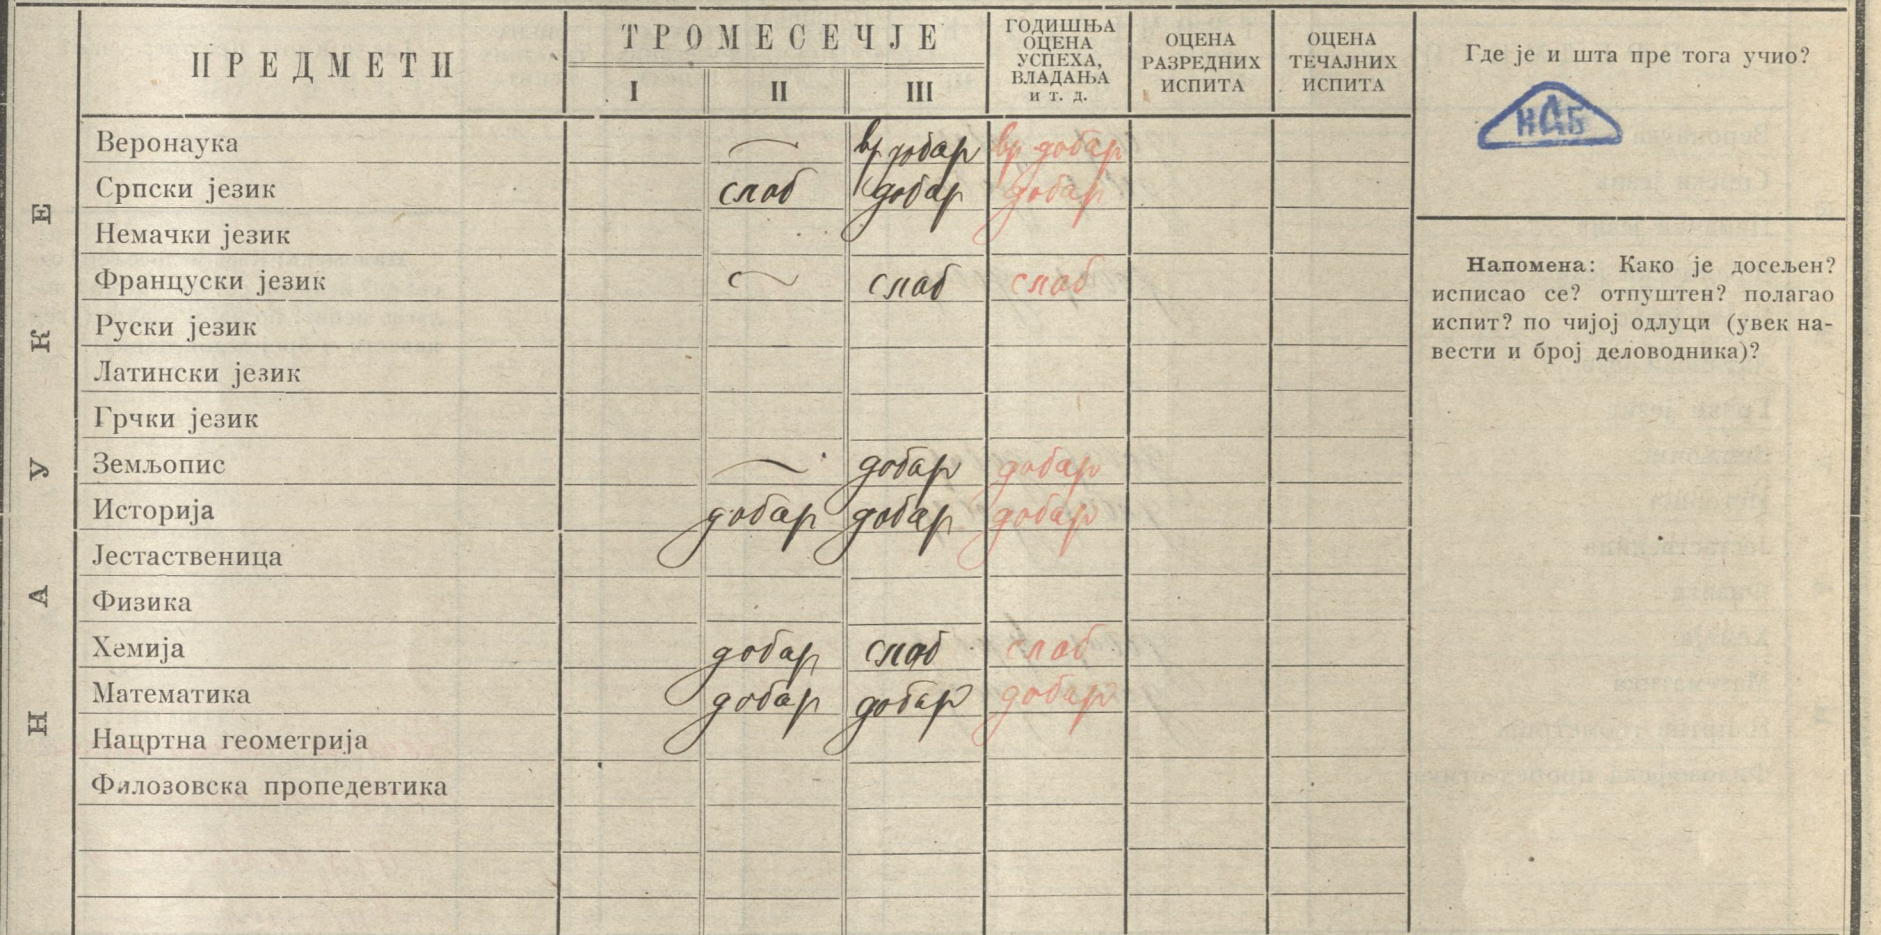 ПРЕДМЕТИ
ТРОМЕСЕЧЈЕ
I II III
ГОДИШЊА
ОЦЕНА
УСПЕХА,
ВЛАДАЊА
и т. д.
ОЦЕНА
РАЗРЕДНИХ
ИСПИТА
ОЦЕНА
ТЕЧАЈНИХ
ИСПИТА
Где је и шта пре тога учио?
НАБ
НАУКЕ
Веронаука вр добар вр добар
Српски језик слаб добар добар
Немачки језик
Француски језик слаб слаб
Руски језик
Латински језик
Грчки језик
Земљопис добар добар
Историја добар добар добар
Јестаственица
Физика
Хемија добар слаб слаб
Математика добар добар добар
Нацртна геометрија
Филозовска пропедевтика
Напомена: Како је досељен?
исписао се? отпуштен? полагао
испит? по чијој одлуци (увек на-
вести и број деловодника)?